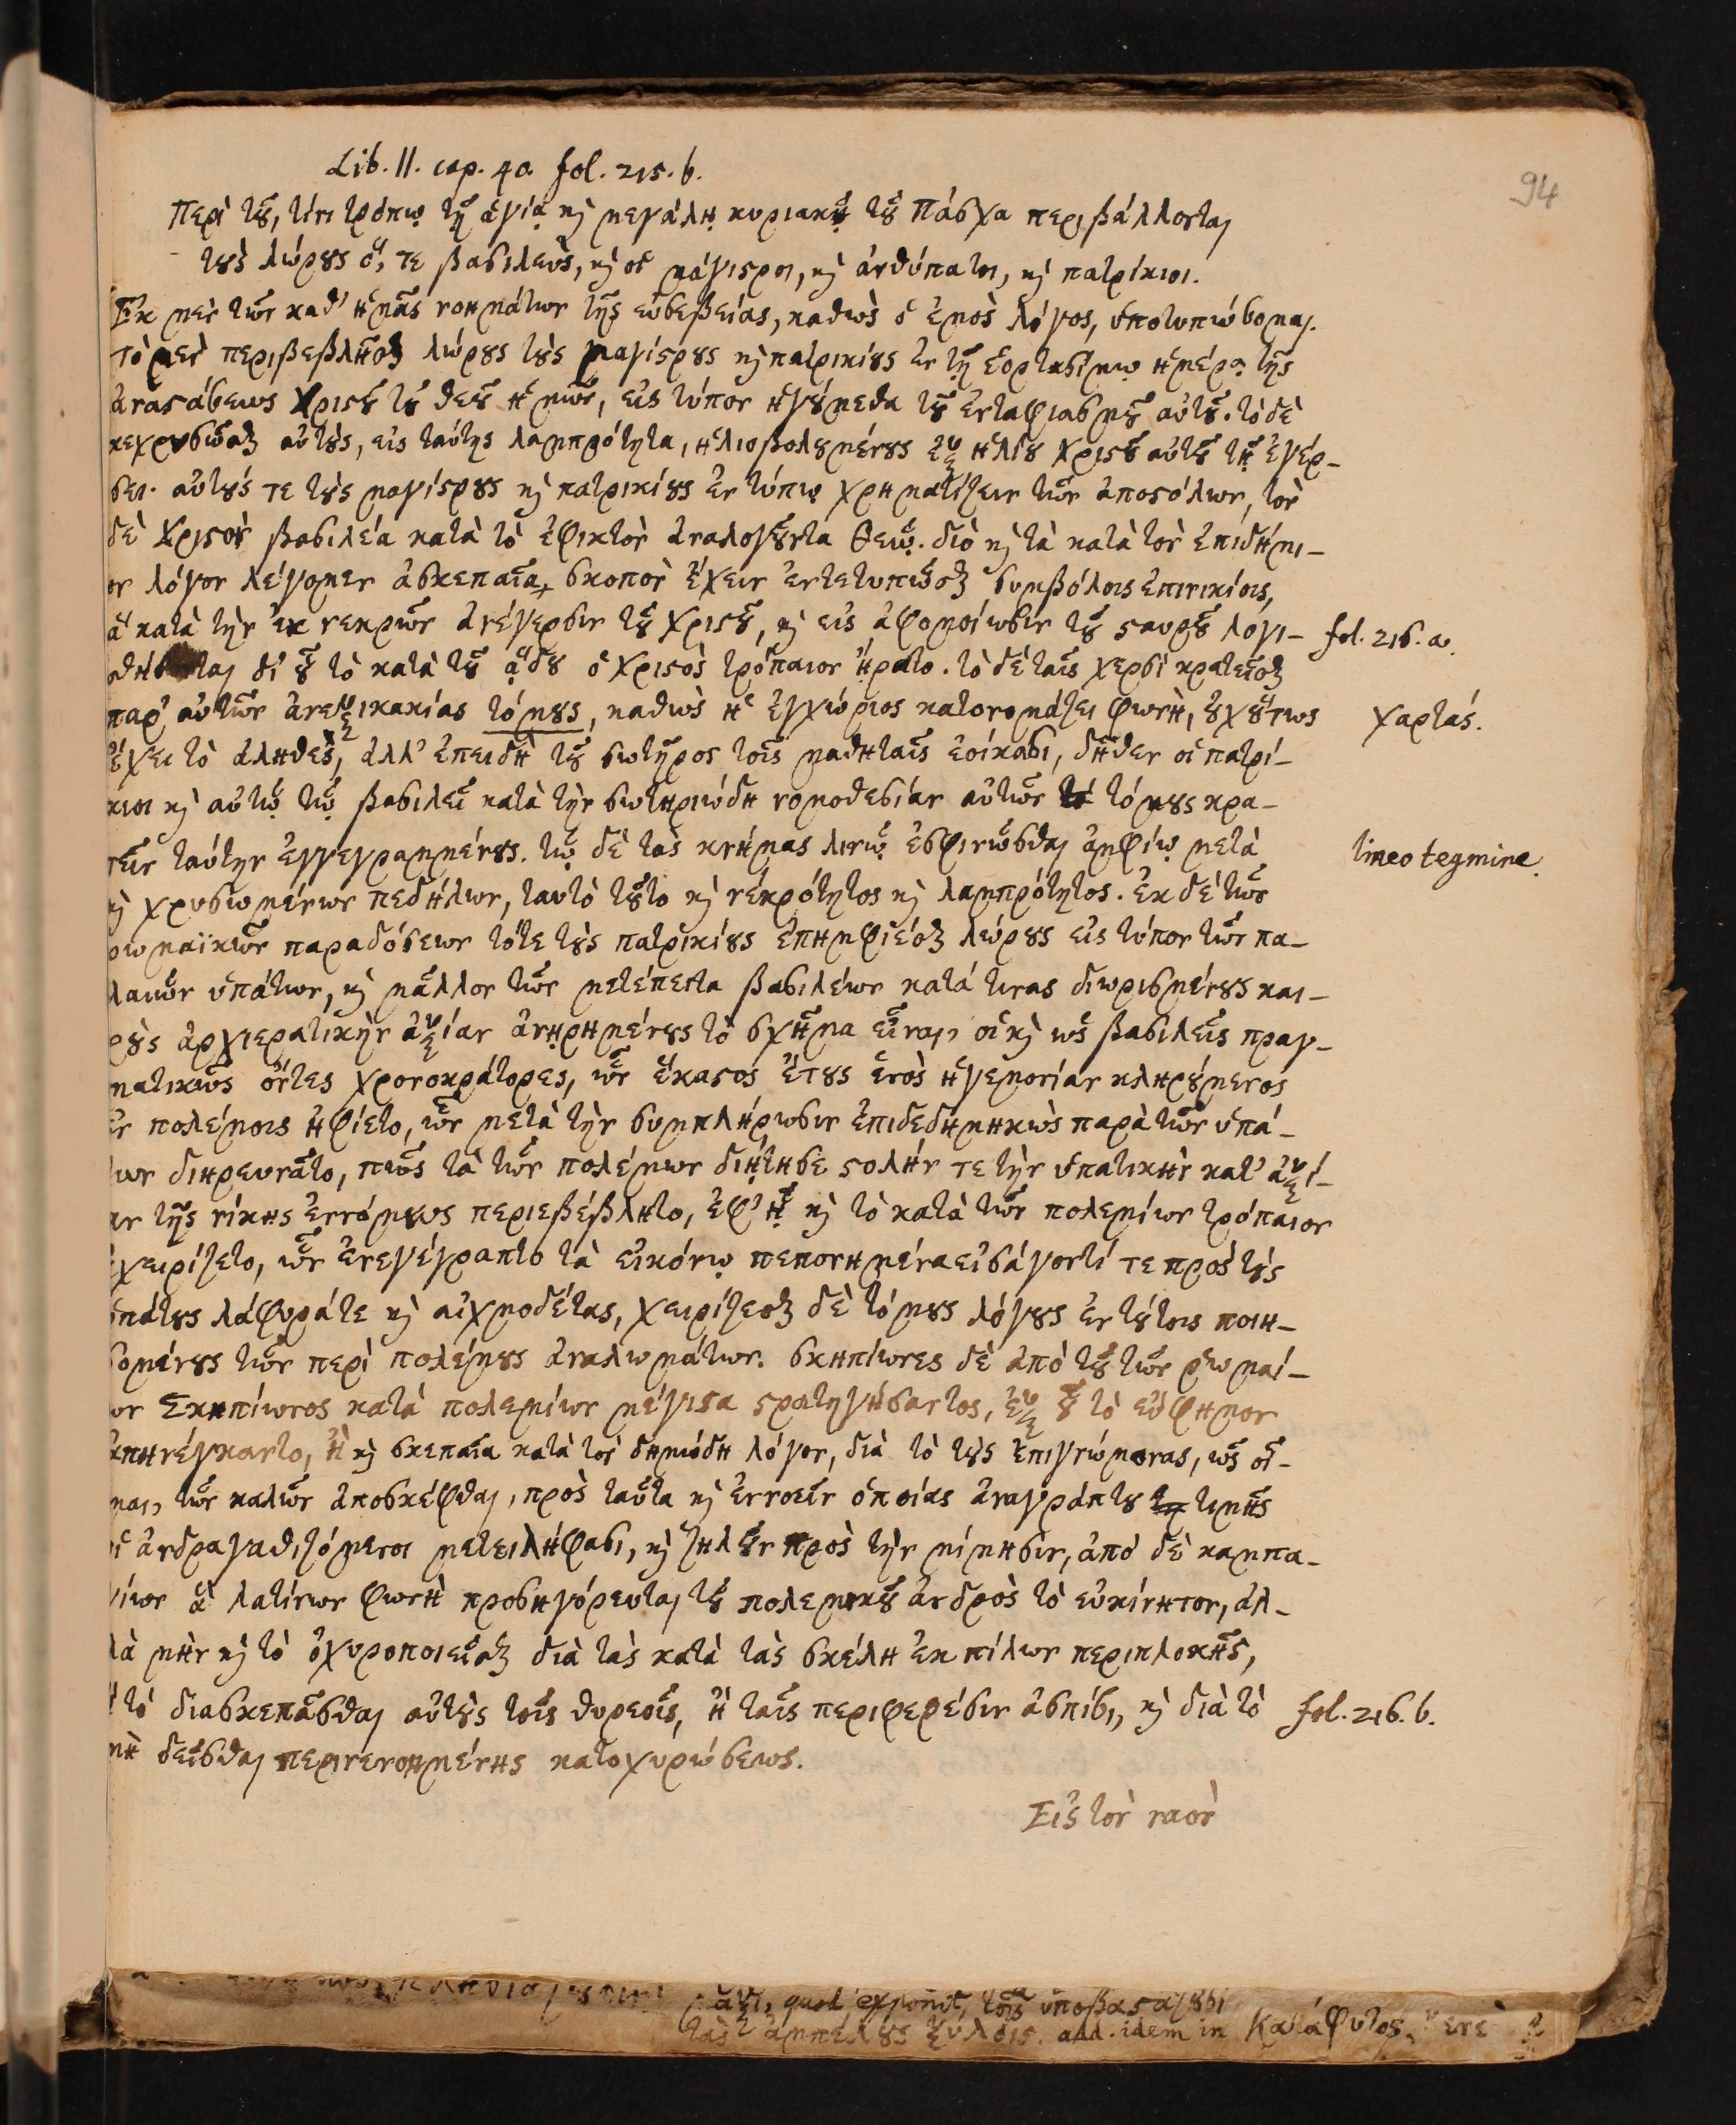 94
Lib. II. cap. 40. fol. 215. b.
Περὶ τȣ͂, τίνι τρόπῳ τῇ ἁγίᾳ ϗ μεγάλῃ κυριακῇ τȣ͂ Πάσχα περιβάλλονται
τȣ̀ς λώρȣς ὅ, τε βασιλεὺς, ϗ οἱ μάγιϛροι, ϗ ἀνθύπατοι, ϗ πατρίκιοι.
Ἐκ μὲν τῶν καθ' ἡμᾶς νοημάτων τῆς εὐσεβείας, καθὼς ὁ ἐμὸς λόγος, ὑποτυπώσομαι.
τὸ μὲν περιβεβλῆσθαι λώρȣς τȣ̀ς μαγίϛρȣς ϗ πατρικίȣς ἐν τῇ ἑορτασίμῳ ἡμέρᾳ τῆς
ἀναϛάσεως Χριϛȣ͂ τȣ͂ θεȣ͂ ἡμῶν, εἰς τύπον ἡγȣ́μεθα τȣ͂ ἐνταφιασμȣ͂ αὐτȣ͂. τὸ δὲ
κεχρυσῶσθαι αὐτȣ̀ς, εἰς ταύτης λαμπρότητα, ἡλιοβολȣμένȣς ἐξ ἡλίȣ Χριϛȣ͂ αὐτȣ͂ τῇ ἐγέρ-
σει. αὐτȣ́ς τε τȣ̀ς μαγίϛρȣς ϗ πατρικίȣς ἐν τύπῳ χρηματίζειν τῶν ἀποϛόλων, τὸν
δὲ Χριϛὸν βασιλέα κατὰ τὸ ἐφικτὸν ἀναλογȣ͂ντα θεῷ. διὸ ϗ τὰ κατὰ τὸν ἐπιδήμι-
ον λόγον λέγομεν ἀσκεπαῖα, σκοπὸν ἔχειν ἐντετυπῶσθαι συμβόλοις ἐπινικίοις,
ἃ κατὰ τὴν ἐκ νεκρῶν ἀνέγερσιν τȣ͂ Χριϛȣ͂, ϗ εἰς ἀφομοίωσιν τȣ͂ ϛαυρȣ͂ λογι- fol. 216. a.
σθήσεται δι' ȣ͂ τὸ κατὰ τȣ͂ ᾅδȣ ὁ Χριϛὸς τρόπαιον ἤρατο. τὸ δὲ ταῖς χερσὶ κρατεῖσθαι
παρ' αὐτῶν ἀνεξικακίας τόμȣς, καθὼς ἡ ἐγχώριος κατονομάζει φωνὴ, ȣ̓χ ȣ̔́τως χαρτάς.
ἔχει τὸ ἀληθὲς, ἀλλ' ἐπειδὴ τȣ͂ σωτῆρος τοῖς μαθηταῖς ἐοίκασι, δῆθεν οἱ πατρί-
κιοι ϗ αὐτῷ τῷ βασιλεῖ κατὰ τὴν σωτηριώδη νομοθεσίαν αὐτῶν τόμȣς κρα-
τεῖν ταύτην ἐγγεγραμμένȣς. τῷ δὲ τὰς κνήμας λινῷ ἐσφινῶσθαι ἀμφίῳ μετὰ lineo tegmine.
ϗ χρυσωμένων πεδήλων, ταυτὸ τȣ͂το ϗ νεκρότητος ϗ λαμπρότητος. Ἐκ δὲ τῶν
ρωμαϊκῶν παραδόσεων τότε τȣ̀ς πατρικίȣς ἐπημφιέσθαι λώρȣς εἰς τύπον τῶν πα-
λαιῶν ὑπάτων, ϗ μᾶλλον τῶν μετέπειτα βασιλέων κατά τινας διωρισμένȣς και-
ρȣ̀ς ἀρχιερατικὴν ἀξίαν ἀνῃρημένȣς τὸ σχῆμα εἶναι, οἳ ϗ ὡς βασιλεῖς πραγ-
ματικῶς ὄντες χρονοκράτορες, ὧν ἕκαϛος ἔτȣς ἑνὸς ἡγεμονίαν κληρȣ́μενος
ἐν πολέμοις ἠφίετο, ὧν μετὰ τὴν συμπλήρωσιν ἐπιδεδημηκὼς παρὰ τῶν ὑπά-
των διηρευνᾶτο, πῶς τὰ τῶν πολέμων διῄτησε ϛολήν τε τὴν ὑπατικὴν κατ' ἀξί-
αν τῆς νίκης ἐννόμως περιεβέβλητο, ἐφ' ᾗ ϗ τὸ κατὰ τῶν πολεμίων τρόπαιον
ἐχειρίζετο, ὧν ἐνεγέγραπτο τὰ εἰκόνῳ πεπονημένα εἰσάγοντί τε πρὸς τȣ̀ς
ὑπάτȣς λάφυρά τε ϗ αἰχμοδέτας, χειρίζεσθαι δὲ τόμȣς λόγȣς ἐν τȣ́τοις ποιη-
σομένȣς τῶν περὶ πολέμȣς ἀναλωμάτων. σκηπίωνες δὲ ἀπὸ τȣ͂ τῶν ρωμαί-
ων Σκηπίωνος κατὰ πολεμίων μέγιϛα ϛρατηγήσαντος, ἐξ ȣ͂ τὸ εὔφημον
ἀπηνέγκαντο, ἢ ϗ σκεπαῖα κατὰ τὸν δημώδη λόγον, διὰ τὸ τȣ̀ς ἐπιγνώμονας, ὡς οἶ-
μαι, τῶν καλῶν ἀποσκέφθαι, πρὸς ταῦτα ϗ ἐννοεῖν ὁποίας ἀναγράπτȣ τιμῆς
οἱ ἀνδραγαθιζόμενοι μετειλήφασι, ϗ ζηλȣ͂ν πρὸς τὴν μίμησιν, ἀπὸ δὲ καμπα-
γίων ἃ λατίνων φωνῇ προσηγόρευται τȣ͂ πολεμικȣ͂ ἀνδρὸς τὸ εὐκίνητον, ἀλ-
λὰ μὴν ϗ τὸ ὀχυροποιεῖσθαι διὰ τὰς κατὰ τὰς σκέλη ἐκ πίλων περιπλοκῆς,
ἢ τὸ διασκεπᾶσθαι αὐτȣ̀ς τοῖς θυρεοῖς, ἢ ταῖς περιφερέσιν ἀσπίσι, ϗ διὰ τὸ fol. 216. b.
μὴ δεῖσθαι περινενοημένης κατοχυρώσεως.
Εἰς τὸν ναὸν
quod exponit, τοῖς
τὰς ἀμπέλȣς ξύλοις. add. idem in Κατάφυτος.